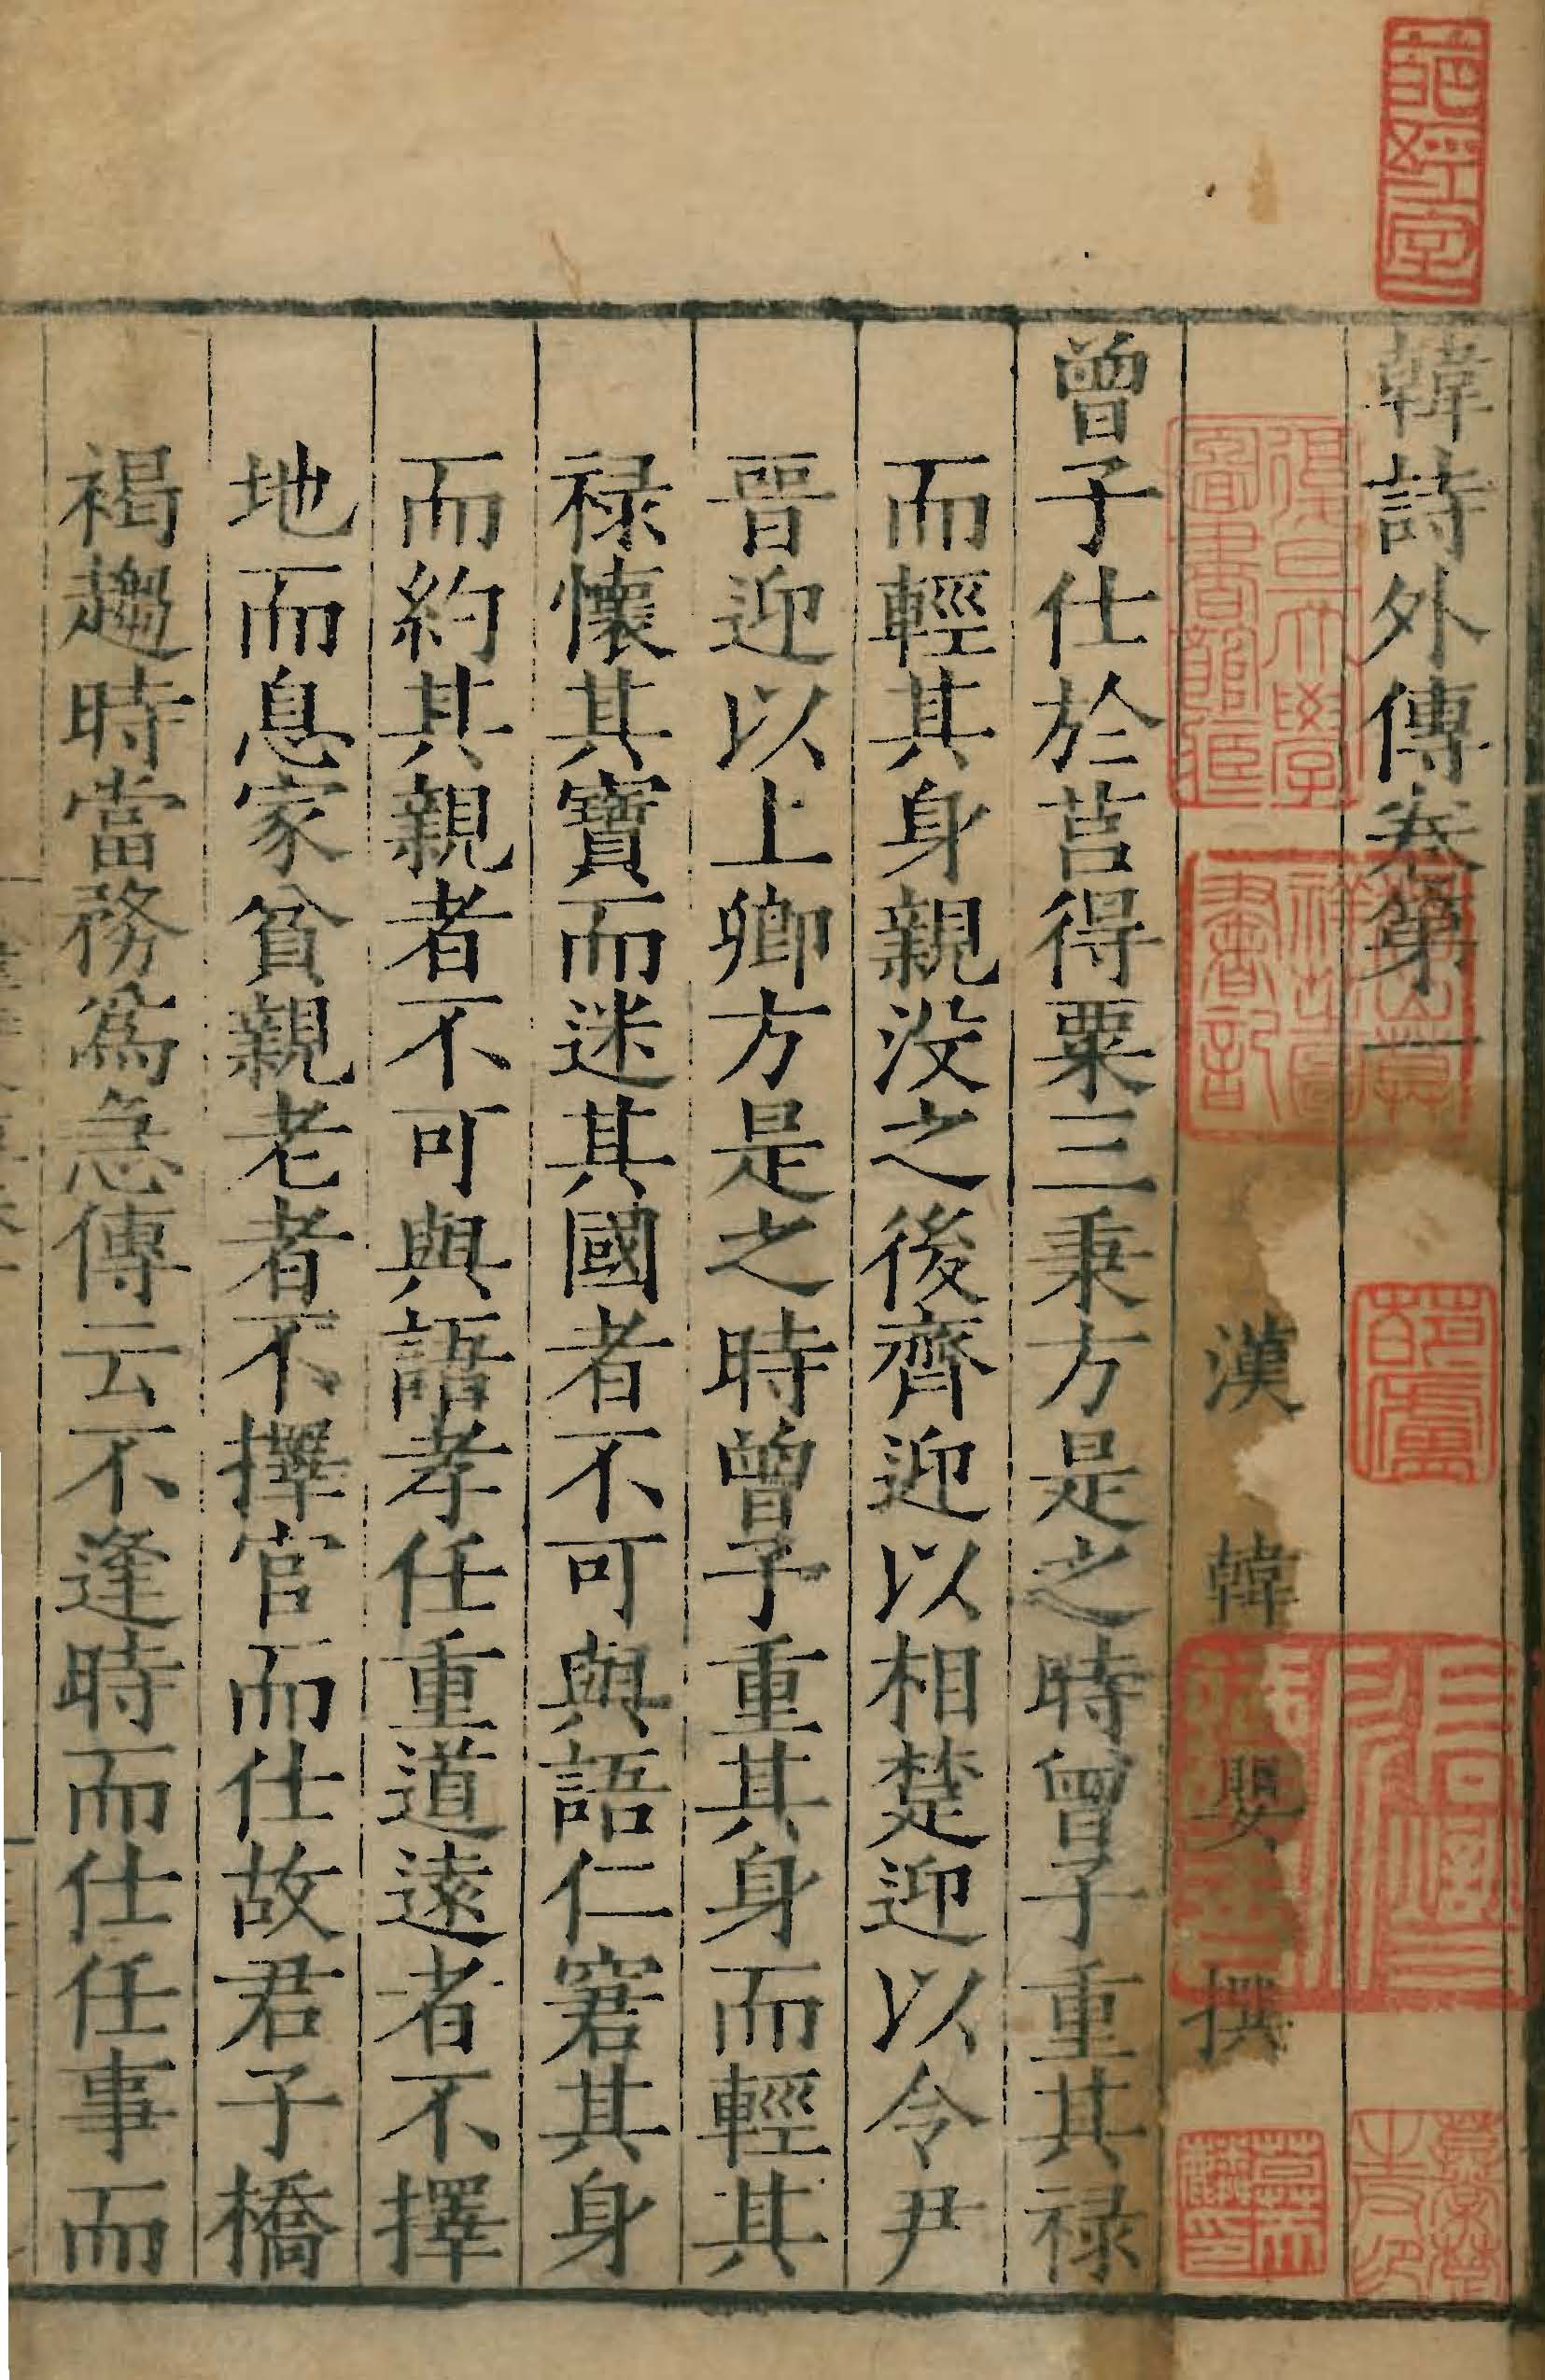 韓詩外傳卷第一
漢韓嬰撰
曾子仕於莒得粟三秉方是之時曾子重其祿
而輕其身親没之後齊迎以相楚迎以令尹
晉迎以上卿方是之時曾子重其身而輕其
祿懷其寶而迷其國者不可與語仁窘其身
而約其親者不可與語孝任重道遠者不擇
地而息家貧親老者不擇官而仕故君子橋
褐趨時當務爲急傳云不逢時而仕任事而
復旦大學
圖書館藏